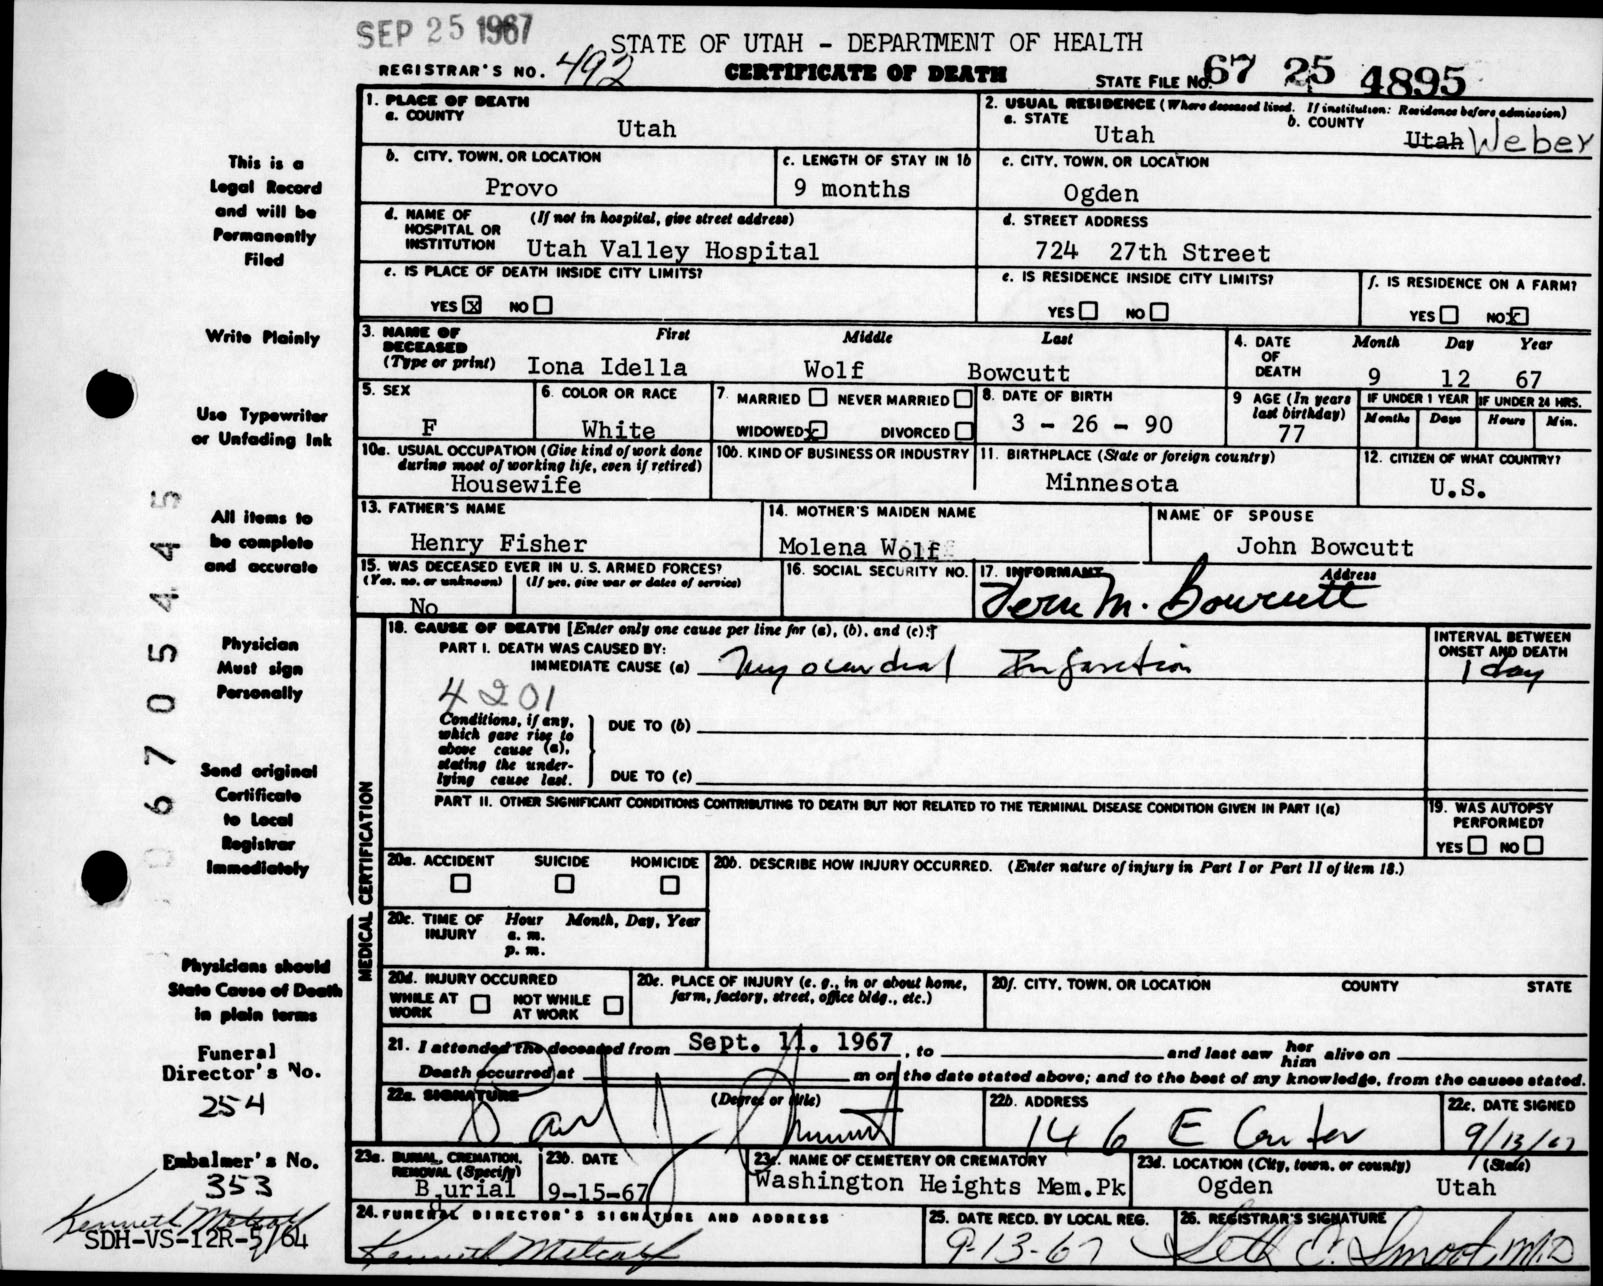 SEP 25 1967
STATE OF UTAH - DEPARTMENT OF HEALTH
REGISTRAR'S NO. 492
CERTIFICATE OF DEATH
STATE FILE NO. 67 25 4895
This is a
Legal Record
and will be
Permanently
Filed
Write Plainly
Use Typewriter
or Unfading Ink
All items to
be complete
and accurate
Physician
Must sign
Personally
Send original
Certificate
to Local
Registrar
Immediately
Physicians should
State Cause of Death
in plain terms
Funeral
Director's No.
254
Embalmer's No.
353
Kenneth Metcalf
SDH-VS-12R-5/64
0 6 7 0 5 4 4 5
1. PLACE OF DEATH
a. COUNTY
Utah
2. USUAL RESIDENCE (Where deceased lived. If institution: Residence before admission)
a. STATE
Utah
b. COUNTY
Utah Weber
b. CITY, TOWN, OR LOCATION
Provo
c. LENGTH OF STAY IN 1b
9 months
c. CITY, TOWN, OR LOCATION
Ogden
d. NAME OF HOSPITAL OR INSTITUTION
(If not in hospital, give street address)
Utah Valley Hospital
d. STREET ADDRESS
724 27th Street
e. IS PLACE OF DEATH INSIDE CITY LIMITS?
YES X NO
e. IS RESIDENCE INSIDE CITY LIMITS?
YES NO
f. IS RESIDENCE ON A FARM?
YES NO X
3. NAME OF DECEASED (Type or print)
First Middle Last
Iona Idella Wolf Bowcutt
4. DATE OF DEATH
Month Day Year
9 12 67
5. SEX
F
6. COLOR OR RACE
White
7. MARRIED NEVER MARRIED
WIDOWED X DIVORCED
8. DATE OF BIRTH
3 - 26 - 90
9 AGE (In years last birthday)
77
IF UNDER 1 YEAR
Months Days
IF UNDER 24 HRS.
Hours Min.
10a. USUAL OCCUPATION (Give kind of work done during most of working life, even if retired)
Housewife
10b. KIND OF BUSINESS OR INDUSTRY
11. BIRTHPLACE (State or foreign country)
Minnesota
12. CITIZEN OF WHAT COUNTRY?
U.S.
13. FATHER'S NAME
Henry Fisher
14. MOTHER'S MAIDEN NAME
Molena Wolf
NAME OF SPOUSE
John Bowcutt
15. WAS DECEASED EVER IN U. S. ARMED FORCES?
(Yes, no, or unknown) (If yes, give war or dates of service)
No
16. SOCIAL SECURITY NO.
17. INFORMANT Address
Fern M. Bowcutt
MEDICAL CERTIFICATION
18. CAUSE OF DEATH [Enter only one cause per line for (a), (b), and (c).]
PART I. DEATH WAS CAUSED BY:
IMMEDIATE CAUSE (a) Myocardial Infarction
INTERVAL BETWEEN ONSET AND DEATH
1 day
4201
Conditions, if any, which gave rise to above cause (a), stating the underlying cause last.
DUE TO (b)
DUE TO (c)
PART II. OTHER SIGNIFICANT CONDITIONS CONTRIBUTING TO DEATH BUT NOT RELATED TO THE TERMINAL DISEASE CONDITION GIVEN IN PART I(a)
19. WAS AUTOPSY PERFORMED?
YES NO
20a. ACCIDENT SUICIDE HOMICIDE
20b. DESCRIBE HOW INJURY OCCURRED. (Enter nature of injury in Part I or Part II of item 18.)
20c. TIME OF INJURY
Hour Month, Day, Year
a. m.
p. m.
20d. INJURY OCCURRED
WHILE AT WORK NOT WHILE AT WORK
20e. PLACE OF INJURY (e. g., in or about home, farm, factory, street, office bldg., etc.)
20f. CITY, TOWN, OR LOCATION COUNTY STATE
21. I attended the deceased from Sept. 11. 1967, to and last saw her him alive on
Death occurred at m on the date stated above; and to the best of my knowledge, from the causes stated.
22a. SIGNATURE (Degree or title)
22b. ADDRESS
146 E Center
22c. DATE SIGNED
9/13/67
23a. BURIAL, CREMATION, REMOVAL (Specify)
Burial
23b. DATE
9-15-67
23c. NAME OF CEMETERY OR CREMATORY
Washington Heights Mem.Pk
23d. LOCATION (City, town, or county) (State)
Ogden Utah
24. FUNERAL DIRECTOR'S SIGNATURE AND ADDRESS
Kenneth Metcalf
25. DATE RECD. BY LOCAL REG.
9-13-67
26. REGISTRAR'S SIGNATURE
Seth E. Smoot, M.D